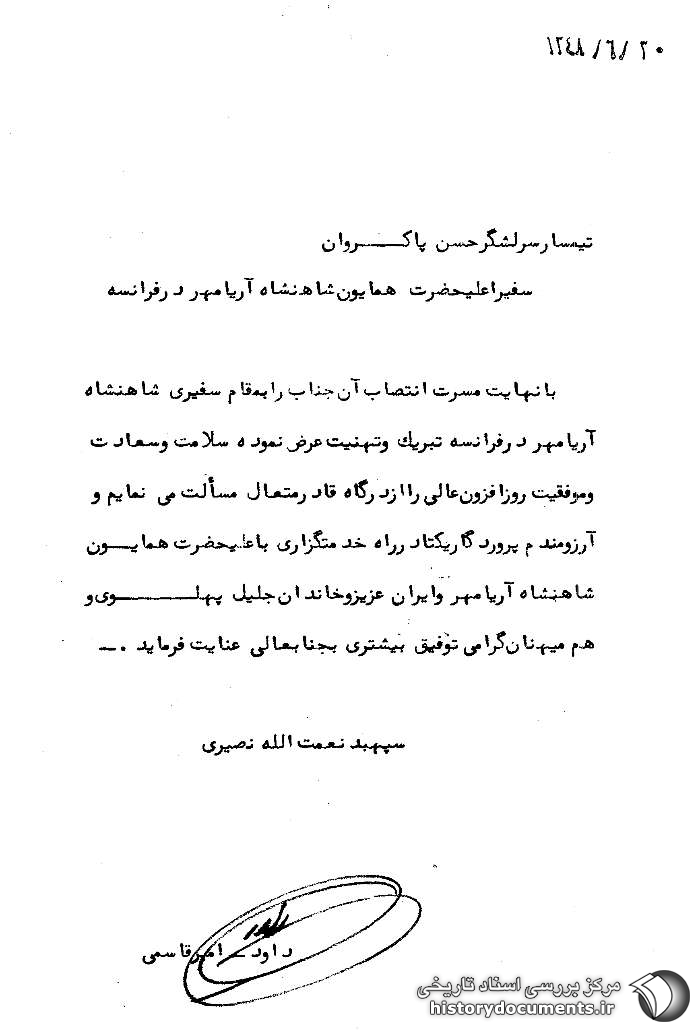 ۱۳۴۸/٦/۲۰
تیمسار سرلشگر حسن پاکـــــروان
سفیر اعلیحضرت همایون شاهنشاه آریامهر در فرانسه
با نهایت مسرت انتصاب آن جناب را بمقام سفیری شاهنشاه
آریامهر در فرانسه تبریك وتهنیت عرض نموده سلامت وسعادت
وموفقیت روزافزون عالی را از درگاه قادر متعال مسألت می نمایم و
آرزومندم پروردگار یکتا در راه خدمتگزاری باعلیحضرت همایـــون
شاهنشاه آریامهر وایران عزیز وخاندان جلیل پهلـــــــــوی و
هم میهنان گرامی توفیق بیشتری بجنابعالی عنایت فرماید ۰ــ
سپهبد نعمت الله نصیری
داود ــ امیرقاسمی
مرکز بررسی اسناد تاریخی
historydocuments.ir